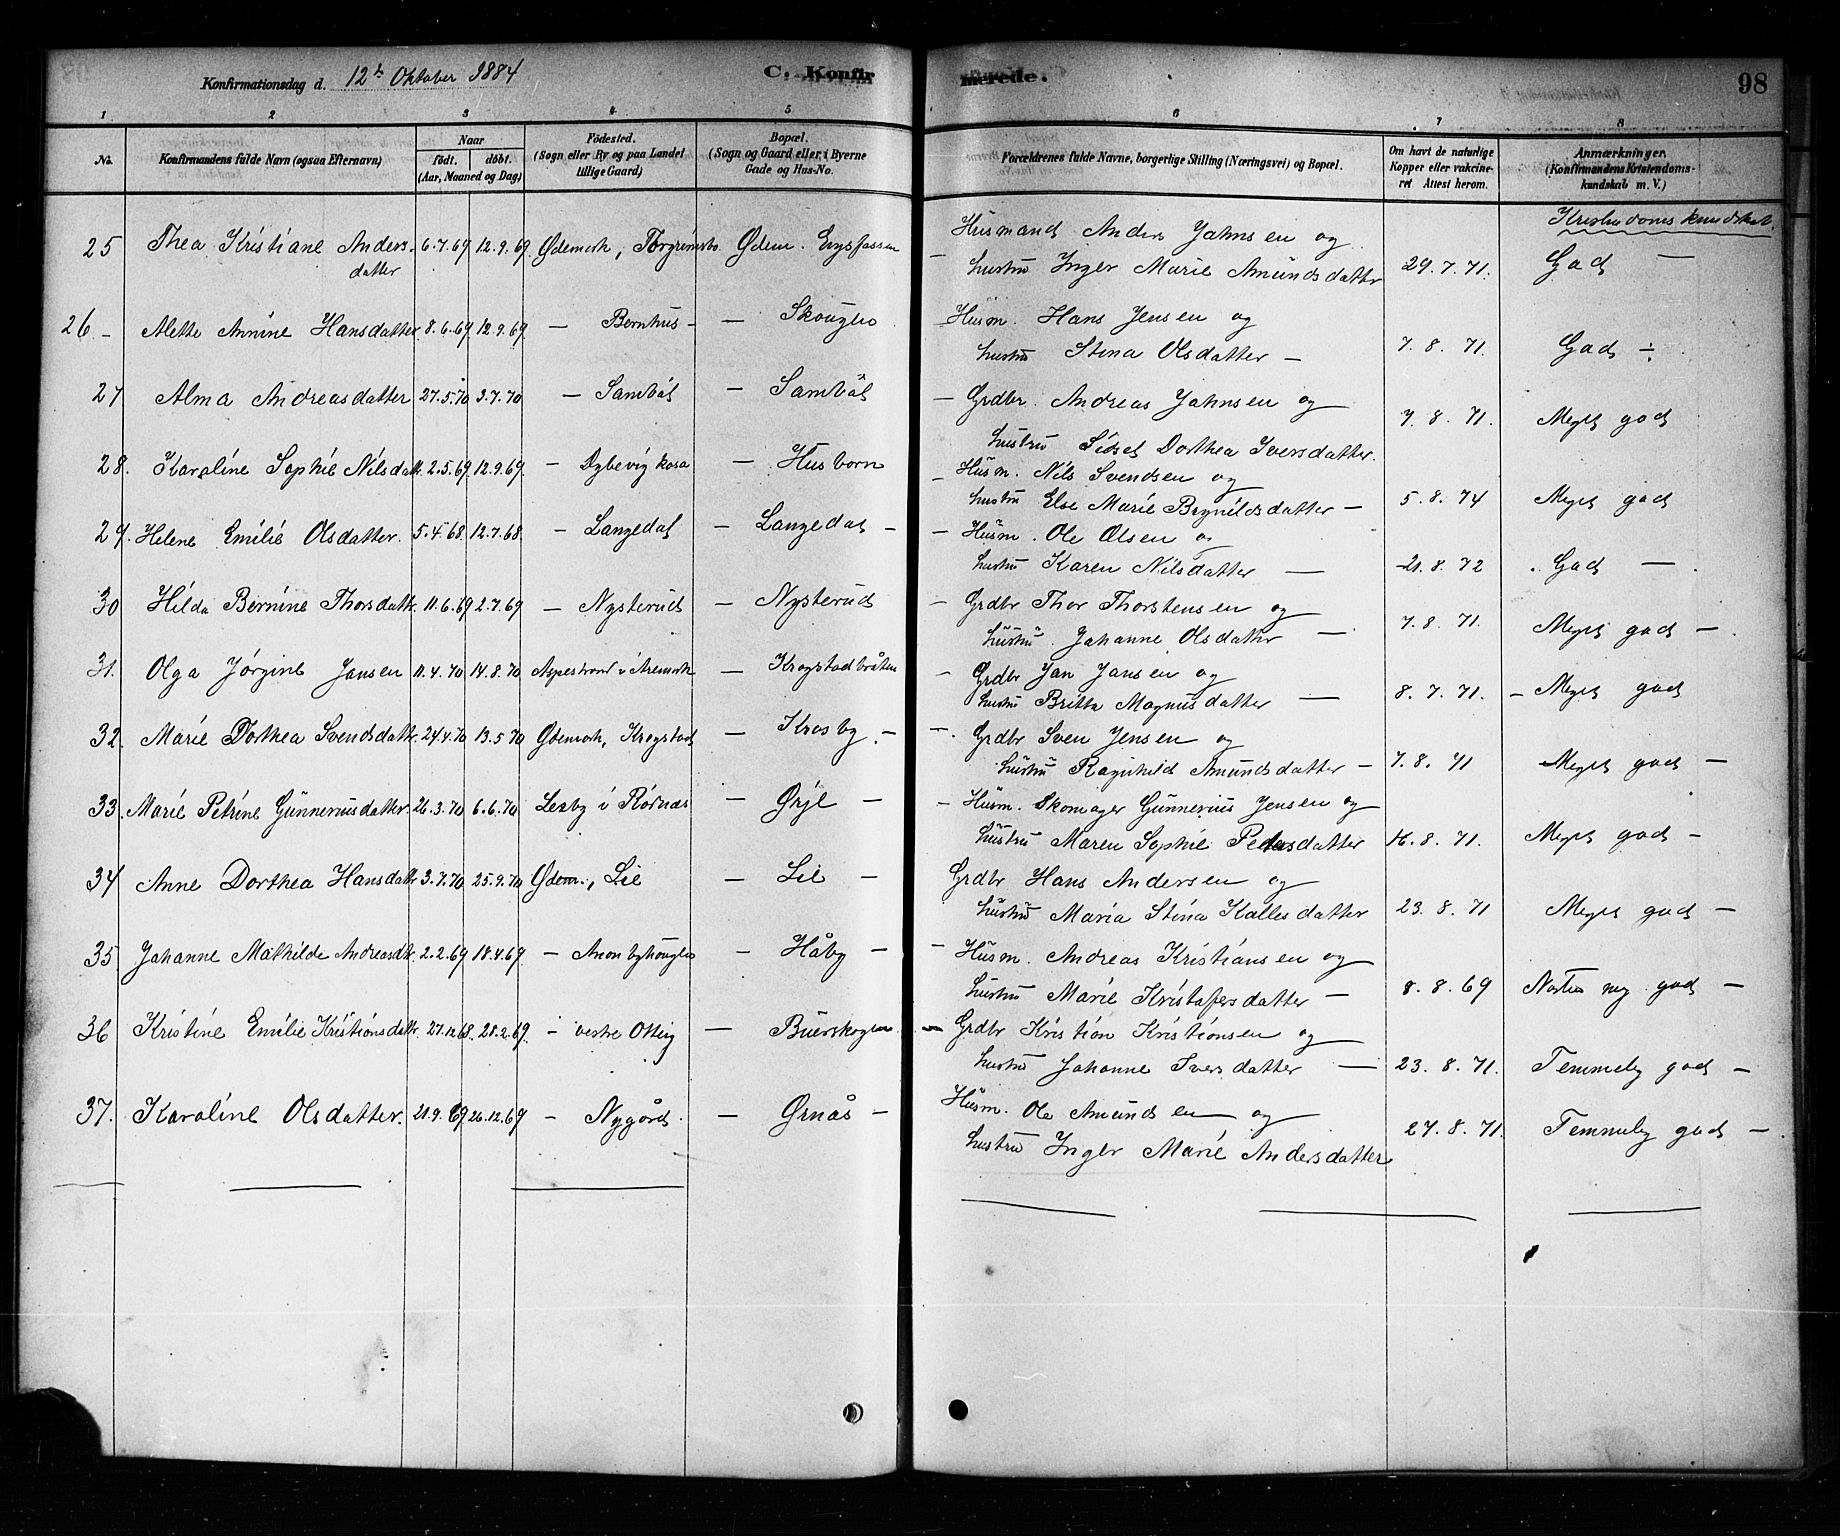 Konfirmationsdag d. 12te Oktober 1884
C. Konfir
merede.
98
1 2 3 4 5 6 7 8
No.
Konfirmandens fulde Navn (ogsaa Efternavn)
Naar
født. døbt.
(Aar, Maaned og Dag)
Fødested.
(Sogn eller By og paa Landet
tillige Gaard)
Bopæl.
(Sogn og Gaard eller i Byerne
Gade og Hus-No.
Forældrenes fulde Navne, borgerlige Stilling (Næringsvei) og Bopæl.
Om havt de naturlige
Kopper eller vakcine-
ret Attest herom.
Anmærkninger.
(Konfirmandens Kristendoms-
kundskab m. V.)
Kristendomskundskab.
25 Thea Kristiane Anders- 6.7.69 12.9.69. Ødemark, Torgrimsbo Ødem. Husmand Anders Johnsen og
datter
hustru Inger Marie Amundsdatter 29.7.71. God —
26 - Alette Annine Hansdatter 8.6.69 12.9.69. — Bernhus - — Skouglio — Husm. Hans Jensen og
hustru Stina Olsdatter — 7.8.71. God ÷
27 Alma Andreasdatter 27.5.70 3.7.70 — Sambøl — Sambøl — Grdbr. Andreas Johnsen og
hustru Sidsel Dorthea Iversdatter. 7.8.71. Meget god
28. Karoline Sophie Nilsdatt. 2.5.69 12.9.69. — Dybevigkasa — Husborn — Husm. Nils Svendsen og
hustru Else Marie Brynildsdatter — 5.8.74 Meget god
29. Helene Emilie Olsdatter. 5.4.68 12.7.68. — Langedal — Langedal — — Husm. Ole Olsen og
hustru Karen Nilsdatter — 21.8.72 God —
30 Hilda Bernine Thorsdatt. 11.6.69 2.7.69 — Nysterud — Nysterud — Grdbr Thor Thorstensen og
hustru Johanne Olsdatter — 7.8.71. Meget god —
31. Olga Jørgine Jansen 11.4.70 14.8.70 Aspestrand i Aremark — Krogstadbråten — Grdbr Jan Jansen og
hustru Britta Magnusdatter — 8.7.71. — Meget god
32. Marie Dorthea Svendsdatt. 24.4.70 13.5.70 Ødemark, Krogstad — Krosby. — — Grdbr Sven Jensen og
hustru Ragnhild Amundsdatter — 7.8.71 Meget god —
33. Marie Petrine Gunneriusdatter. 26.3.70 6.6.70 Lexby i Rørnæs — Ørje — — Husm. Skomager Gunnerius Jensen og
hustru Maren Sophie Pedersdatter 16.8.71. Meget god —
34 Anne Dorthea Hansdatt. 3.7.70 25.9.70 Ødem., Lie — Lie — Grdbr Hans Andersen og
hustru Maria Stina Kallesdatter 23.8.71 Meget god —
35 Johanne Mathilde Andreasdt. 2.2.69 18.4.69 — Håby — — Husm. Andreas Kristiansen og
hustru Marie Kristofersdatter — 8.8.69 Næsten meg. god —
36 Kristine Emilie Kristiansdatt. 27.12.68. 28.2.69. - vestre Otteig — Buerskogen — Grdbr Kristian Kristiansen og
hustru Johanne Iversdatter — 23.8.71. Temmelig god —
37. Karoline Olsdatter. 21.9.69 26.12.69 — Nygård. — Ørnås — Husm. Ole Amundsen og
hustru Inger Marie Andersdatter 27.8.71. Temmelig god —